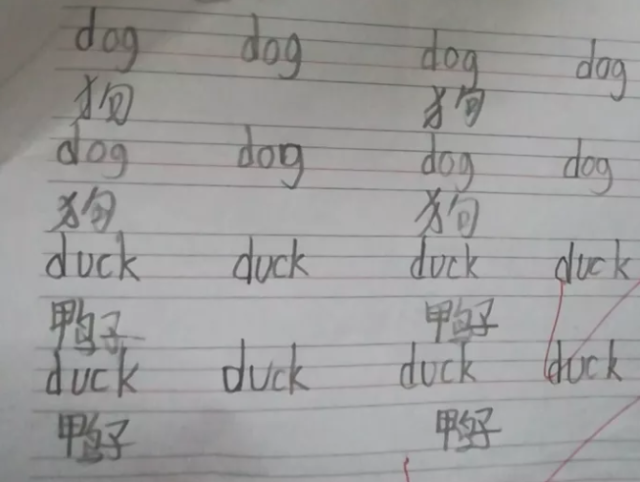 dog dog dog dog
狗 狗
dog dog dog dog
狗 狗
duck duck duck duck
鸭子 鸭子
duck duck duck duck
鸭子 鸭子